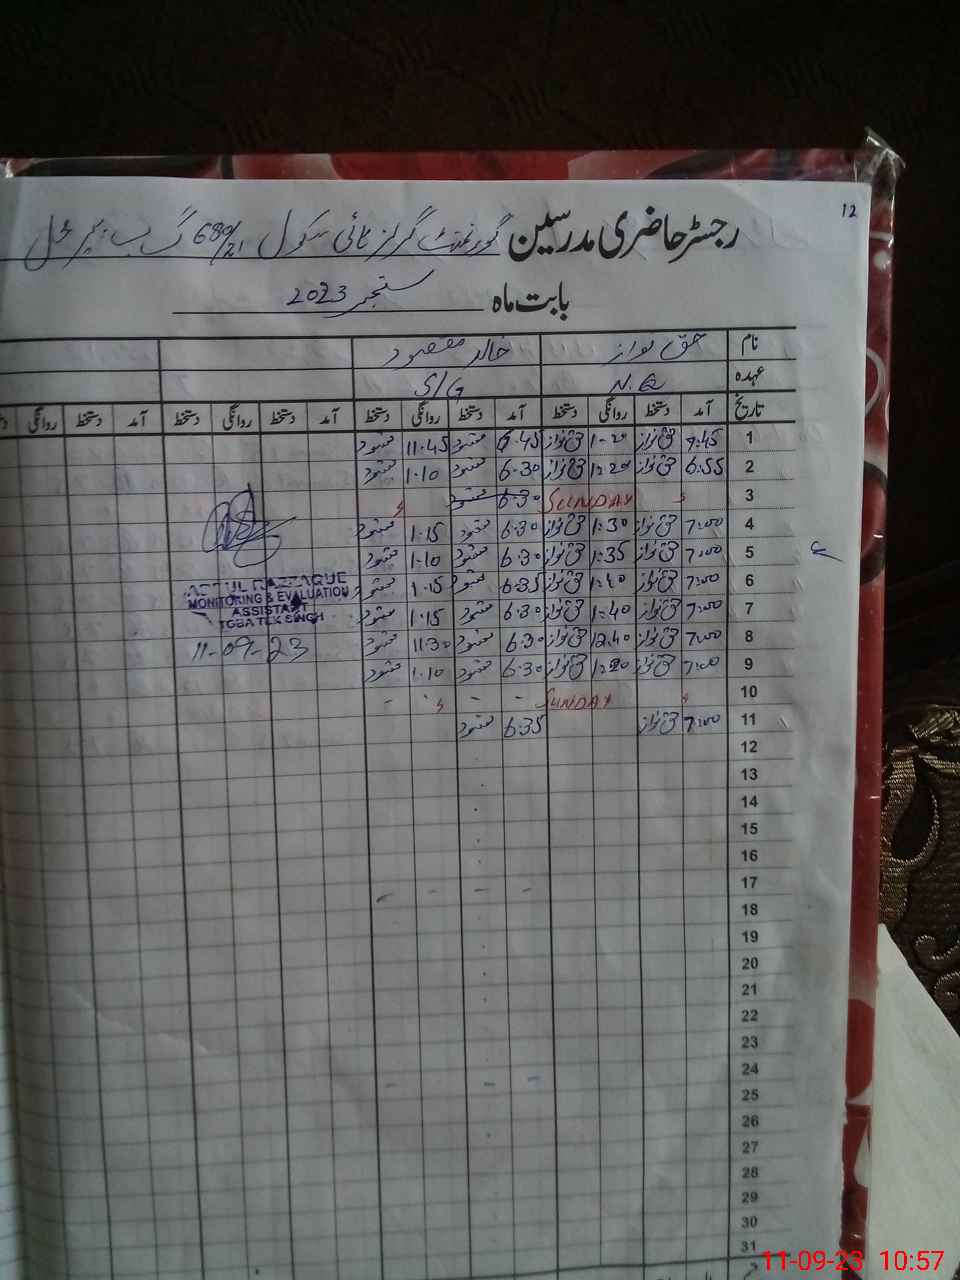 12
رجسٹر حاضری مدرسین گورنمنٹ گرلز ہائی سکول 680/21 گ ب پیر محل
بابت ماہ ستمبر 2023
نام حق نواز خالد مقصود
عہدہ N.Q S/G
تاریخ آمد دستخط روانگی دستخط آمد دستخط روانگی دستخط آمد دستخط روانگی دستخط آمد دستخط روانگی
1 7:45 حق نواز 1-20 حق نواز 6:45 مقصود 11:45 مقصود
2 6:55 حق نواز 1:20 حق نواز 6:30 مقصود 1:10 مقصود
3 SUNDAY 6:30 مقصود
4 7:00 حق نواز 1:30 حق نواز 6:30 مقصود 1:15 مقصود
5 7:00 حق نواز 1:35 حق نواز 6:30 مقصود 1:10 مقصود
6 7:00 حق نواز 1:40 حق نواز 6:35 مقصود 1:15 مقصود
7 7:00 حق نواز 1:40 حق نواز 6:30 مقصود 1:15 مقصود
8 7:00 حق نواز 12:40 حق نواز 6:30 مقصود 11:30 مقصود
9 7:00 حق نواز 1:20 حق نواز 6:30 مقصود 1:10 مقصود
10 SUNDAY
11 7:00 حق نواز 6:35 مقصود
12
13
14
15
16
17
18
19
20
21
22
23
24
25
26
27
28
29
30
31
ABDUL RAZZAQUE
MONITORING & EVALUATION
ASSISTANT
TOBA TEK SINGH
11-09-23
11-09-23 10:57